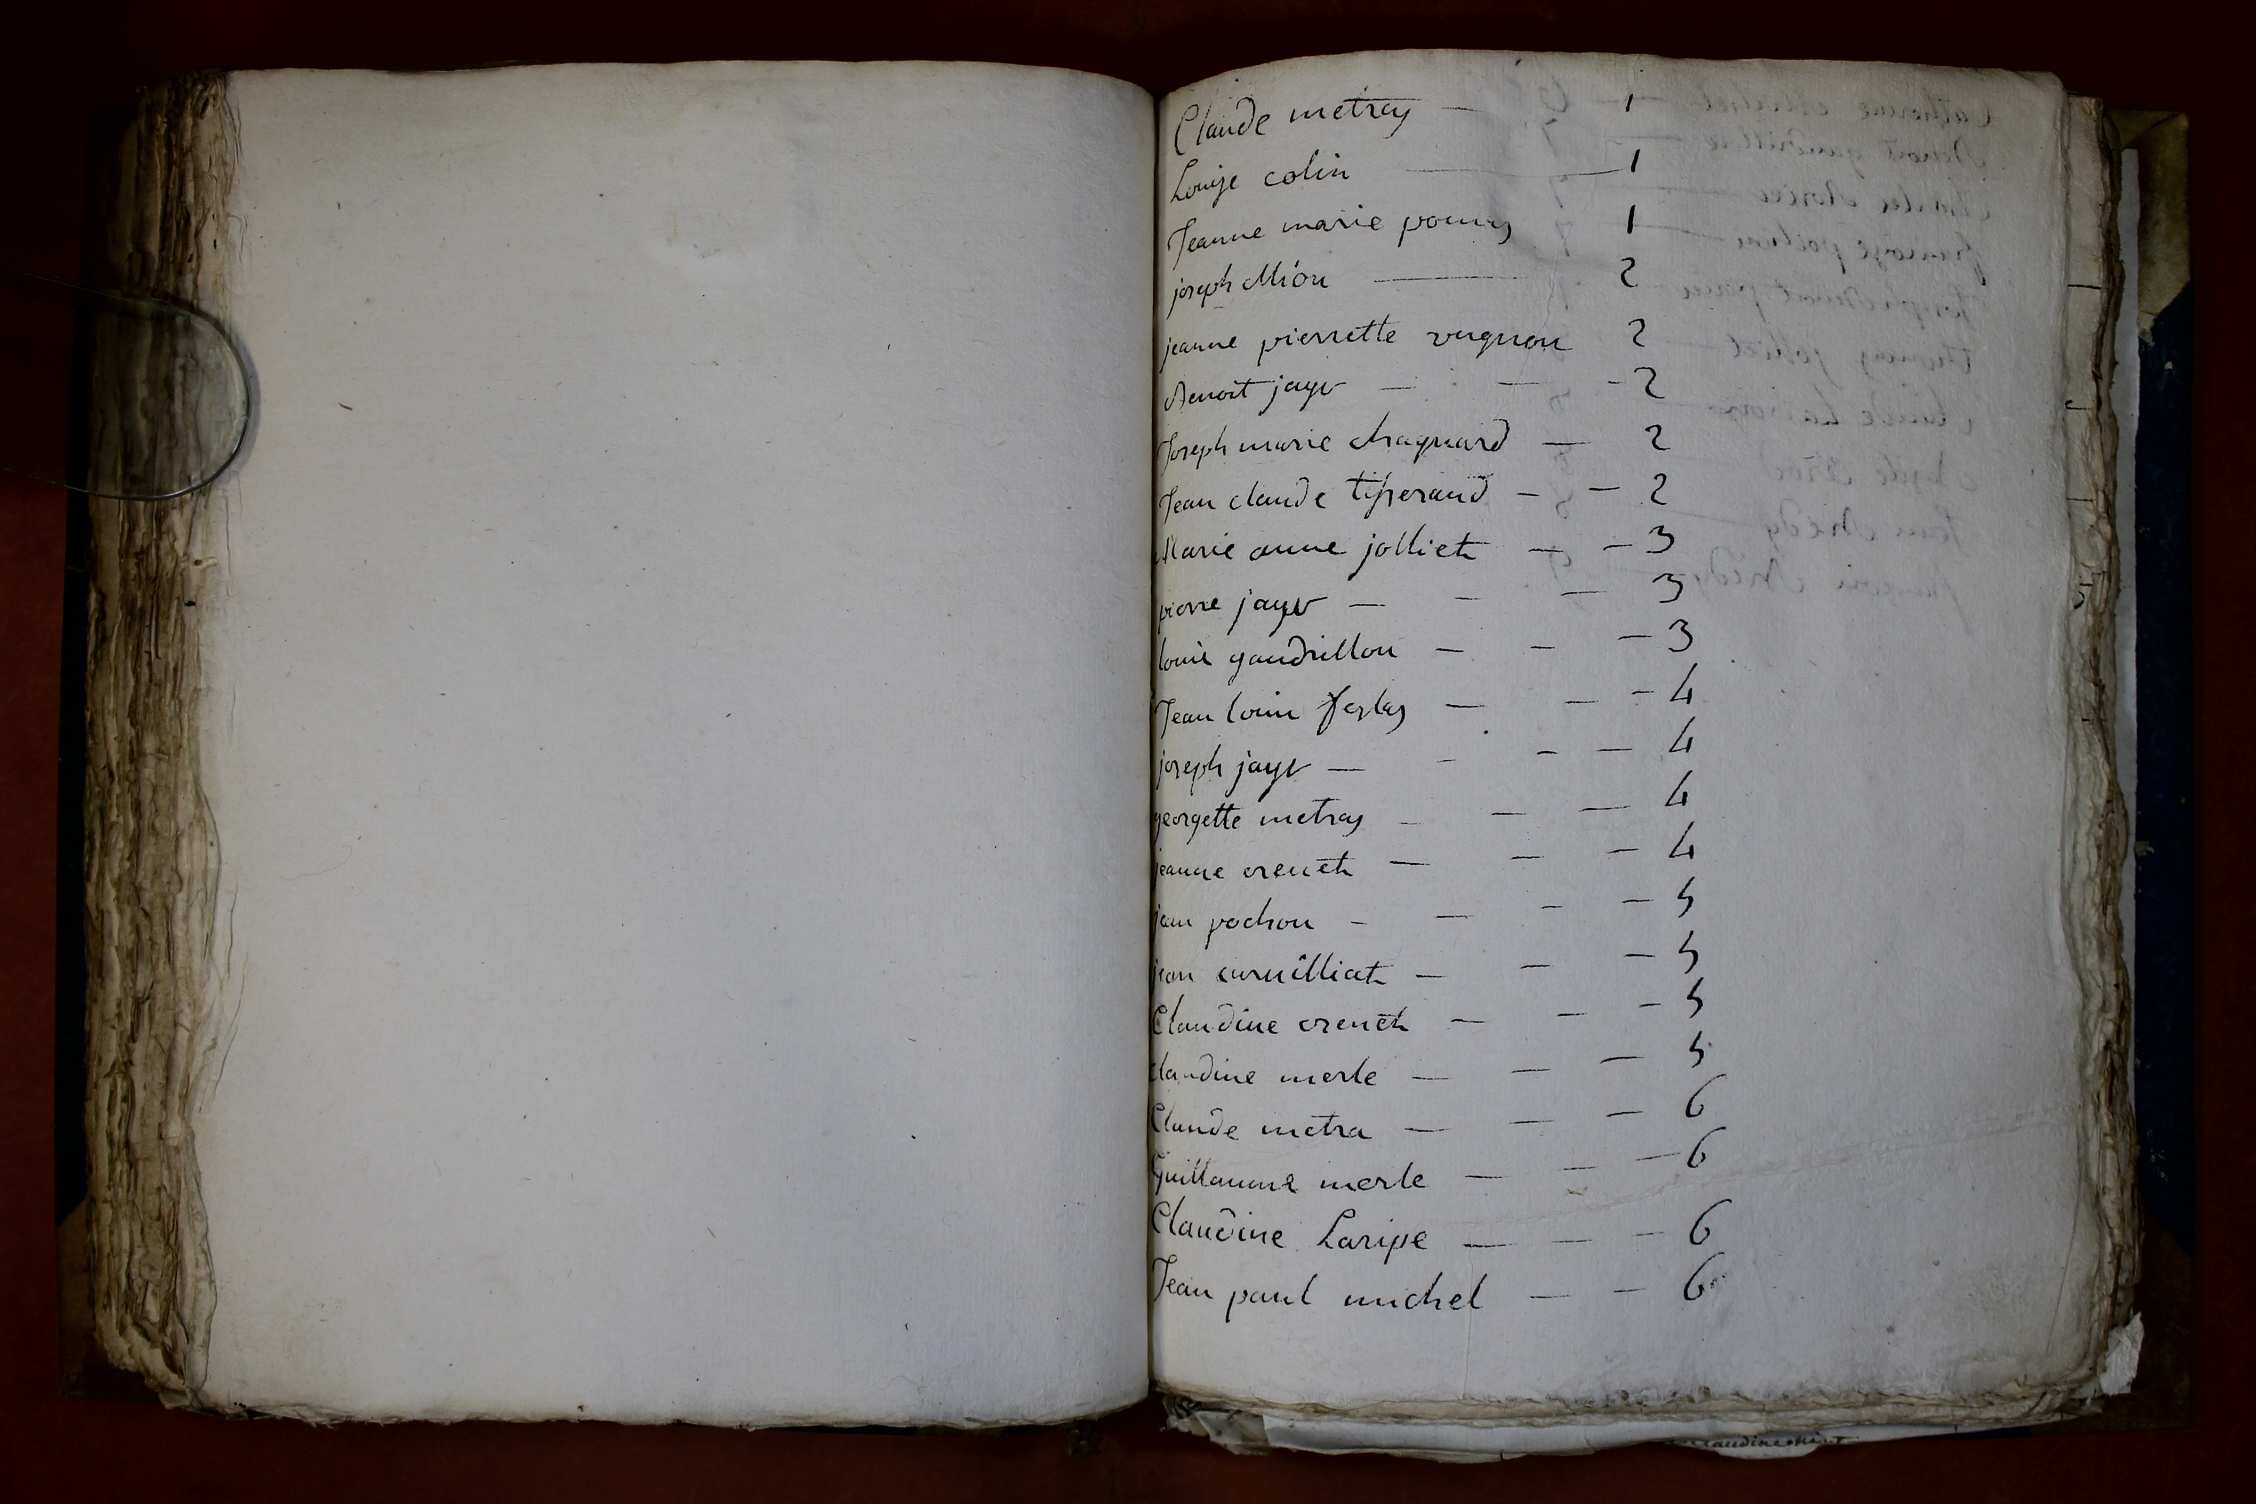 Claude metras — 1
Louise colin — 1
Jeanne marie pomas 1
joseph Mion — 2
jeanne pierrette vugnon 2
Benoit jayr — — - 2
Joseph marie chagnard — 2
Jean claude tisserand — — 2
Marie anne jolliet — — 3
pierre jayr — — — 3
louis gaudrillon — — — 3
Jean louis feylas — — — 4
joseph jayr — - — — 4
georgette metras — — — 4
jeanne crenet — — — 4
jean pochon — — — — 5
jean curnilliat — — — 5
Claudine crenet — — — 5
claudine merle — — — 5
Claude metra — — — 6
Guillaume merle — — — 6
Claudine Laripe — — — 6
Jean paul michel — — 6